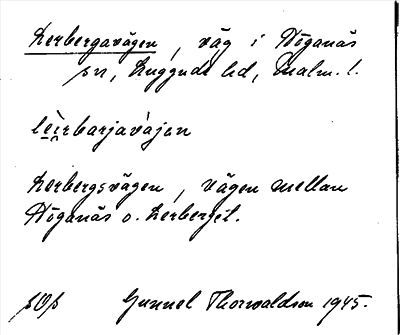 Lerbergavägen, väg i Höganäs
sn, Luggude hd, Malm. l.
lèirbarjavàjan
Lerbergsvägen, vägen mellan
Höganäs o. Lerberget.
Gunnel Thorwaldson 1945.